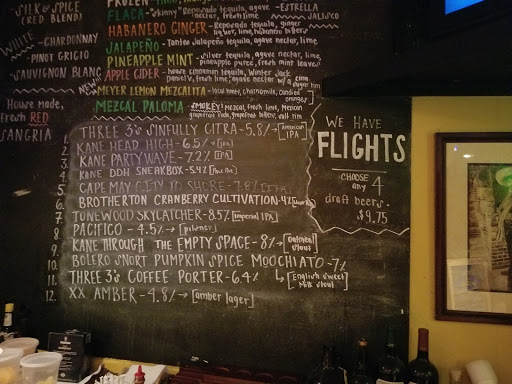 SILK & SPICE
(RED BLEND)
WHITE
- CHARDONNAY
- PINOT GRIGIO
- SAUVIGNON BLANC
House made,
Fresh RED
SANGRIA
FROZEN
FLACA - "Skinny" Reposado tequila, agave nectar, fresh lime
- ESTRELLA JALISCO
HABANERO GINGER - Reposado tequila, ginger
liquor, lime, habanero bitters
JALAPEÑO - Tanteo Jalapeño tequila, agave nectar, lime
PINEAPPLE MINT - silver tequila, agave nectar, lime,
pineapple puree, fresh mint leaves
APPLE CIDER - house cinnamon tequila, Winter Jack
NEW MEYER LEMON MEZCALITA - local honey, chamomile, candied
oranges
MEZCAL PALOMA - SMOKEY! mezcal, fresh lime, Mexican
grapefruit soda, grapefruit bitters, salt rim
1. THREE 3's SINFULLY CITRA - 5.8% → [American IPA]
2. KANE HEAD HIGH - 6.5% → [IPA]
3. KANE PARTY WAVE - 7.2% [IPA]
4. KANE DDH SNEAKBOX - 5.2%
5. CAPE MAY CITY TO SHORE - 7.8% [IPA]
6. BROTHERTON CRANBERRY CULTIVATION - 4.2%
7. TONEWOOD SKYLATCHER - 8.5% [imperial IPA]
8. PACIFICO - 4.5% → [pilsner]
9. KANE THROUGH THE EMPTY SPACE - 8% → [Oatmeal stout]
10. BOLERO SNORT PUMPKIN SPICE MOOCHIATO - 7%
11. THREE 3's COFFEE PORTER - 6.4% ↳ [English sweet Milk stout]
12. XX AMBER - 4.8% → [amber lager]
WE HAVE
FLIGHTS
CHOOSE
any 4
draft beers.
$9.75